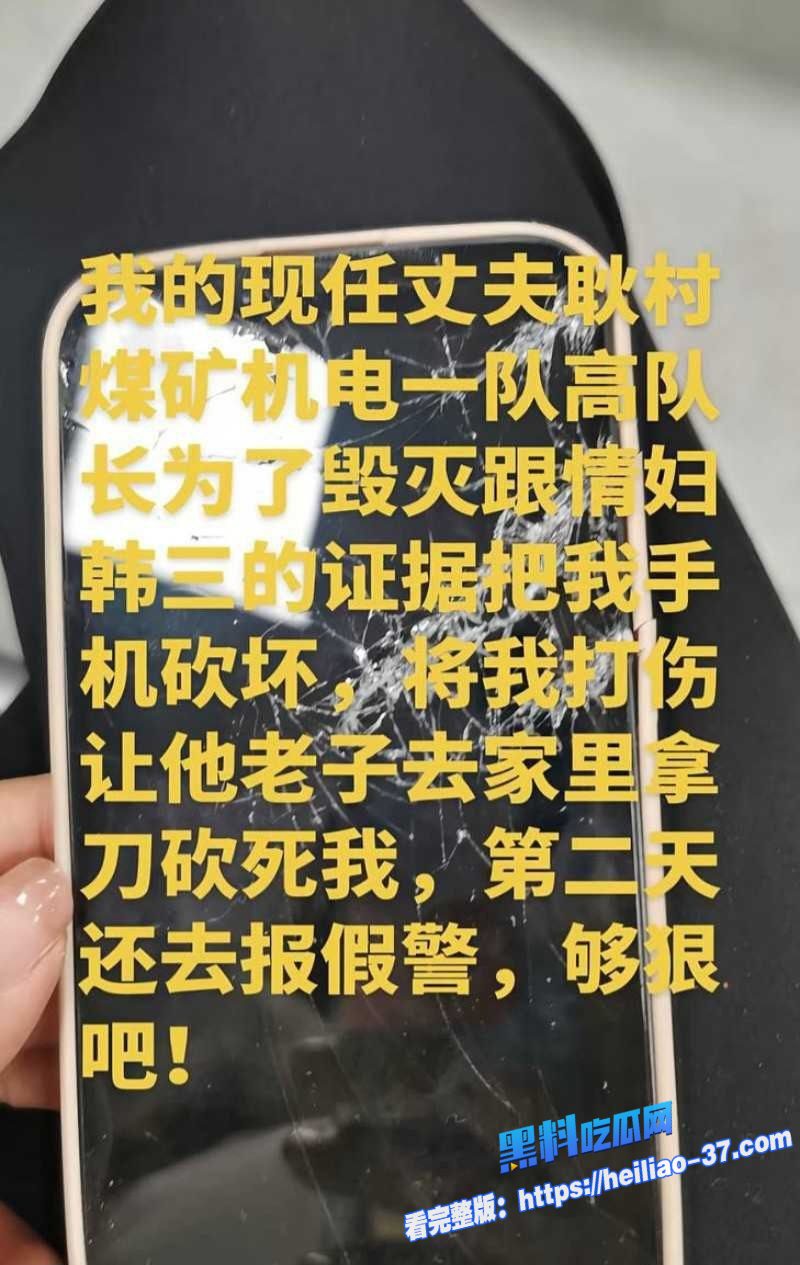 我的现任丈夫耿村
煤矿机电一队高队
长为了毁灭跟情妇
韩三的证据把我手
机砍坏，将我打伤
让他老子去家里拿
刀砍死我，第二天
还去报假警，够狠
吧！
黑料吃瓜网
看完整版：https://heiliao-37.com